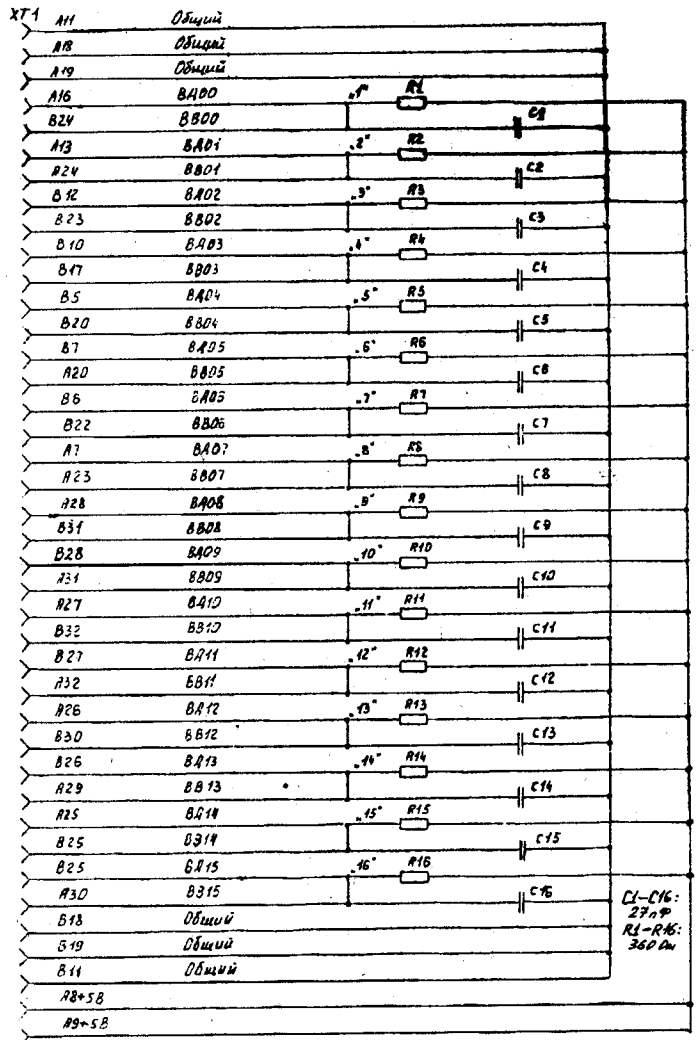 XT1
A11 Общий
A18 Общий
A19 Общий
A16 BA00 „1" R1
B24 BB00 C1
A13 BA01 „2" R2
A24 BB01 C2
B12 BA02 „3" R3
B23 BB02 C3
B10 BA03 „4" R4
B17 BB03 C4
B5 BA04 „5" R5
B20 BB04 C5
B7 BA05 „6" R6
A20 BB05 C6
B6 BA06 „7" R7
B22 BB06 C7
A7 BA07 „8" R8
A23 BB07 C8
A28 BA08 „9" R9
B31 BB08 C9
B28 BA09 „10" R10
A31 BB09 C10
A27 BA10 „11" R11
B32 BB10 C11
B27 BA11 „12" R12
A32 BB11 C12
A26 BA12 „13" R13
B30 BB12 C13
B26 BA13 „14" R14
A29 BB13 C14
A25 BA14 „15" R15
B25 BB14 C15
B25 BA15 „16" R16
A30 BB15 C16
B18 Общий
B19 Общий
B11 Общий
A8+5В
A9+5В
C1–C16:
27пФ
R1–R16:
360 Ом